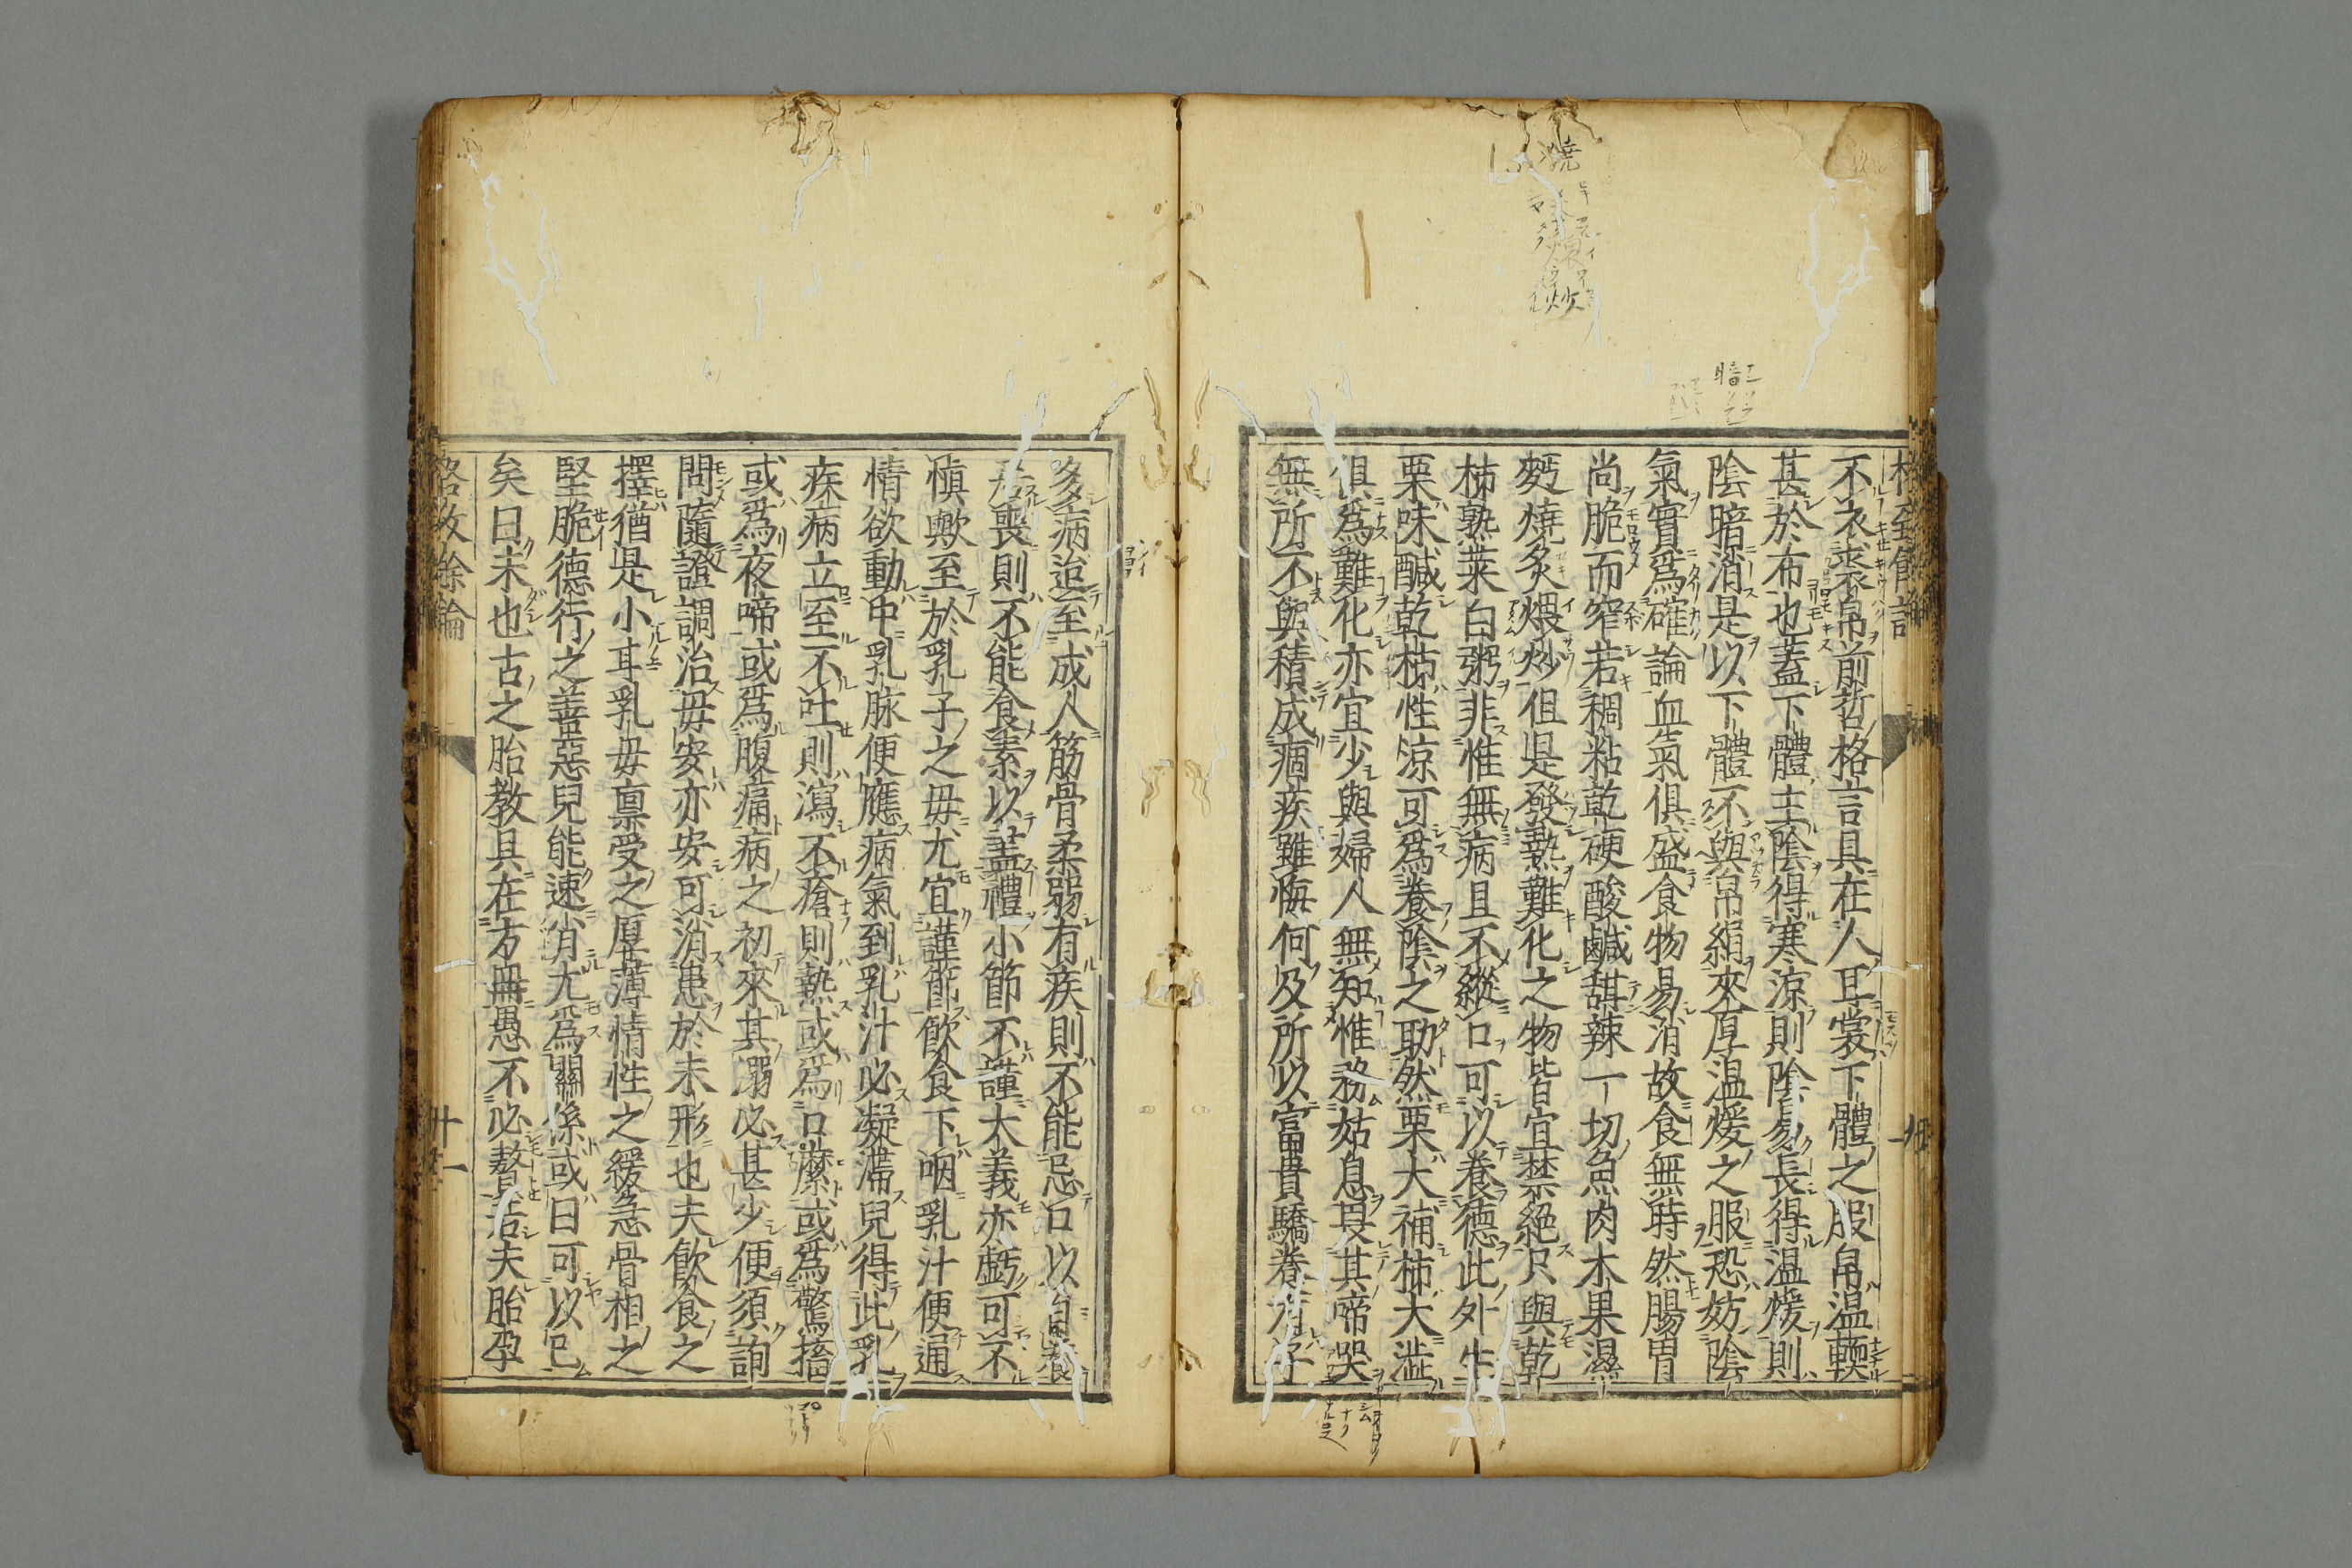 不衣裘帛前哲格言具在人耳裳下體之服帛温輭
甚於布也蓋下體主陰得寒涼則陰易長得温煖則
陰暗消是以下體不與帛絹夾厚温煖之服恐妨陰
氣實爲確論血氣俱盛食物易消故食無時然腸胃
尚脆而窄若稠粘乾硬酸鹹甜辣一切魚肉木果濕
麪燒炙煨炒但是發熱難化之物皆宜禁絶只與乾
柿熟菜白粥非惟無病且不縱口可以養德此外生
栗味鹹乾柿性涼可爲養陰之助然栗大補柿大澁
俱爲難化亦宜少與婦人無知惟務姑息畏其啼哭
無所不與積成痼疾雖悔何及所以富貴驕養有子
多病迨至成人筋骨柔弱有疾則不能忌口以自養
居喪則不能食素以盡禮小節不謹大義亦虧可不
慎歟至於乳子之毋尤宜謹節飲食下咽乳汁便通
情欲動中乳脉便應病氣到乳汁必凝滯兒得此乳
疾病立至不吐則瀉不瘡則熱或爲口糜或爲驚搐
或爲夜啼或爲腹痛病之初來其溺必甚少便須詢
問隨證調治毋安亦安可消患於未形也夫飲食之
擇猶是小耳乳毋禀受之厚薄情性之緩急骨相之
堅脆德行之善惡兒能速肖尤爲關係或曰可以已
矣曰未也古之胎教具在方冊愚不必贅若夫胎孕
格致餘論
廿一
燒
炒
暗